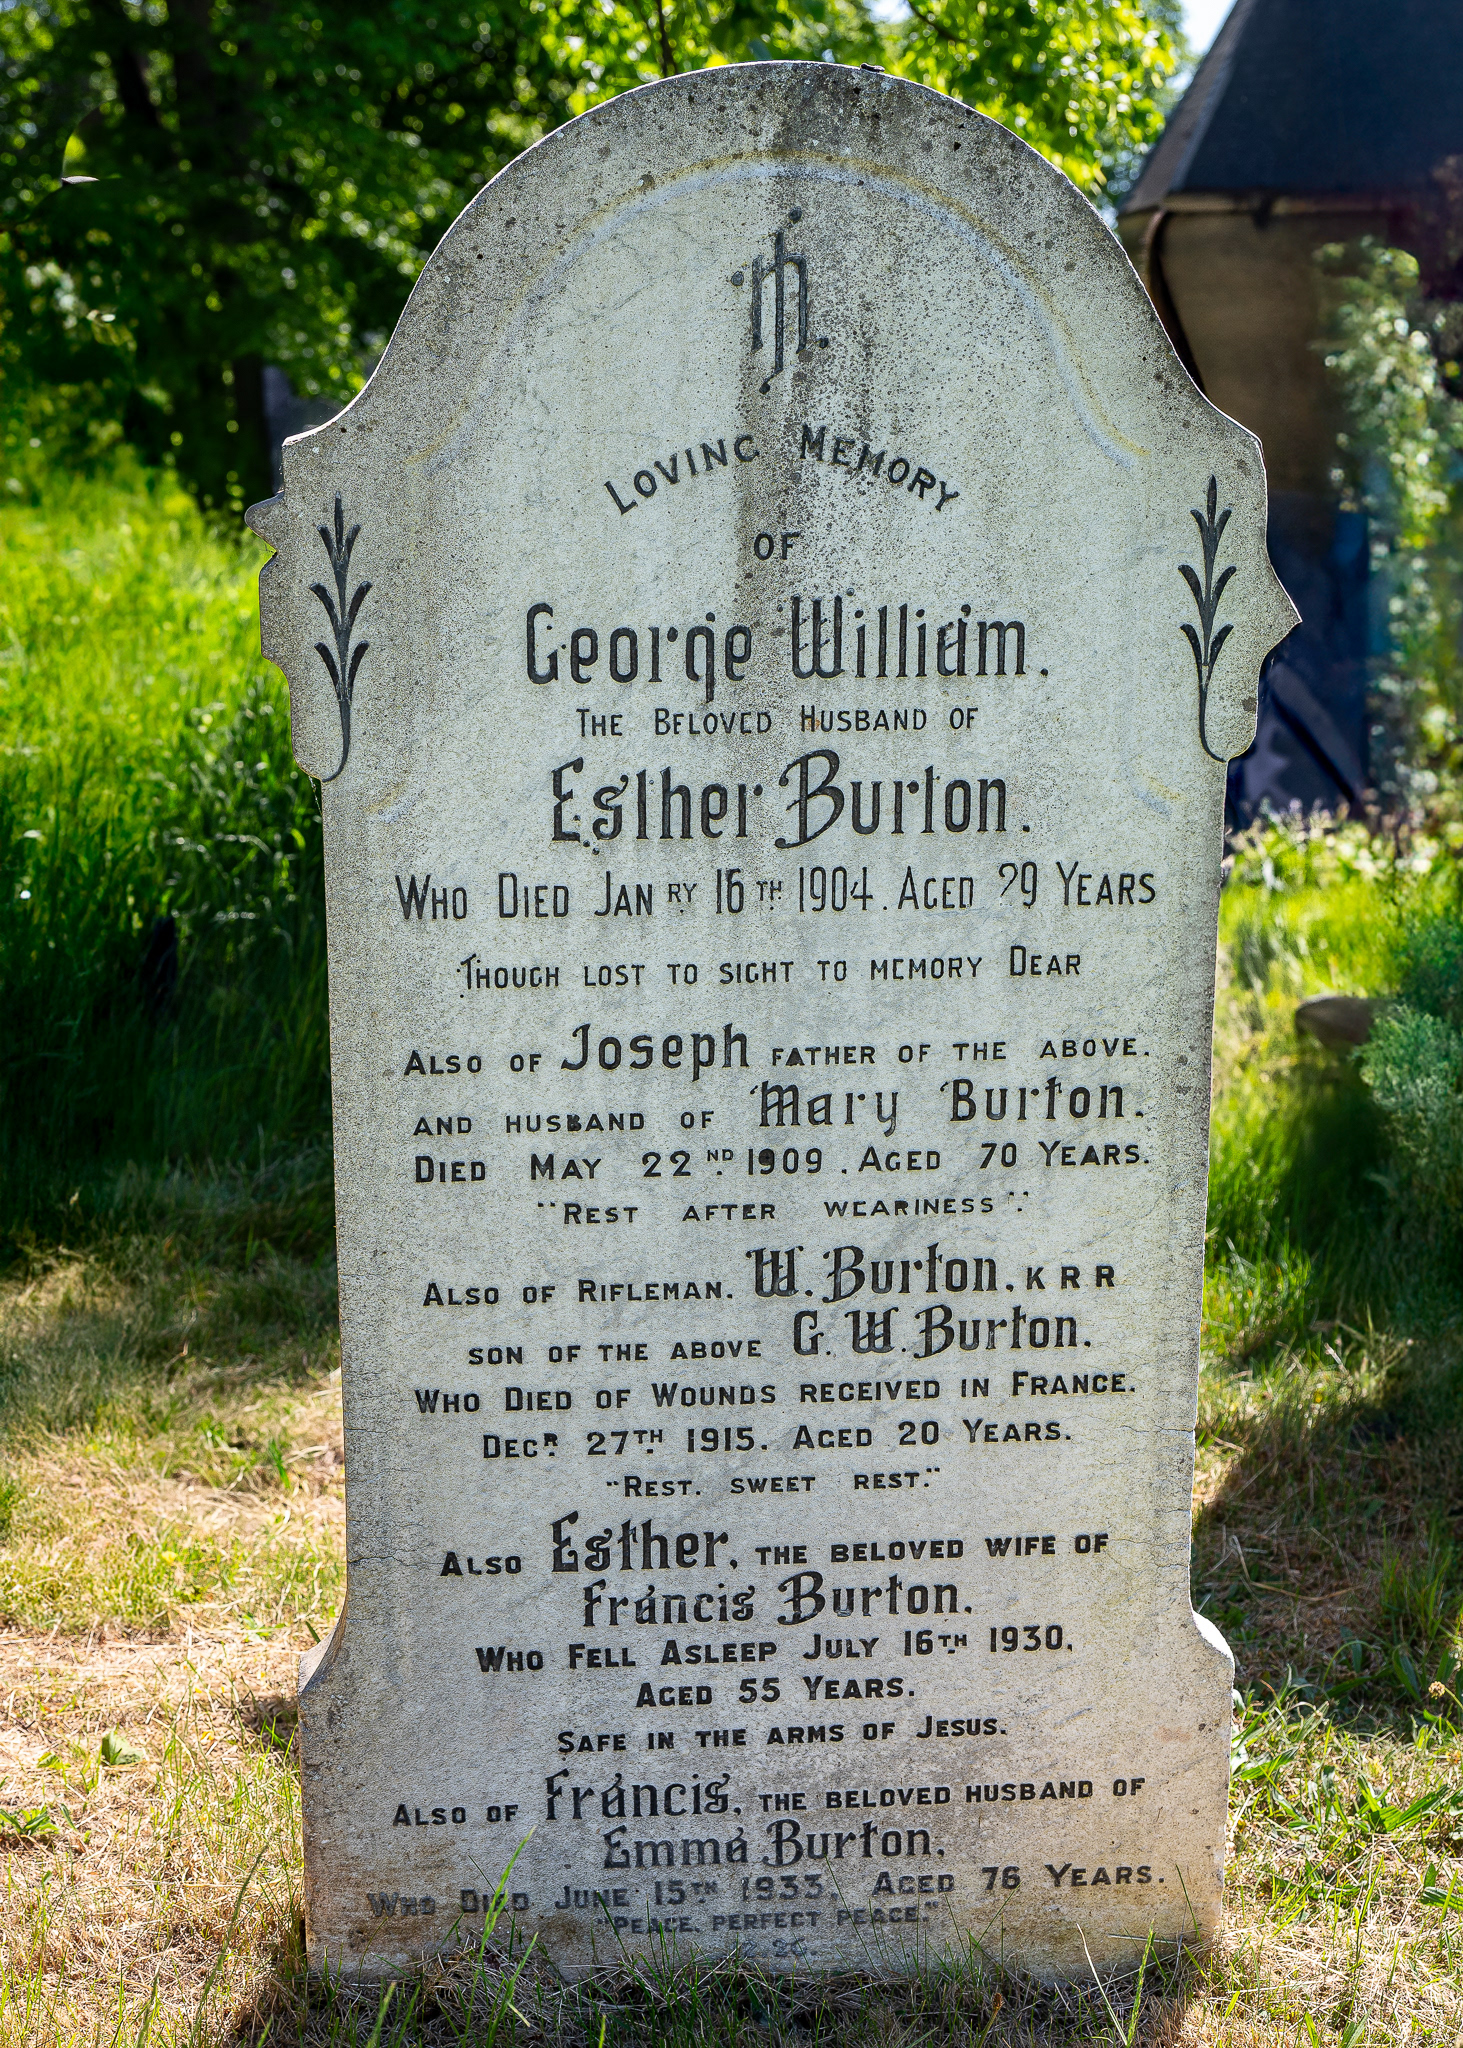 IHS
LOVING MEMORY
OF
George William.
THE BELOVED HUSBAND OF
Esther Burton.
WHO DIED JANRY 16TH 1904. AGED 29 YEARS
THOUGH LOST TO SIGHT TO MEMORY DEAR
ALSO OF Joseph FATHER OF THE ABOVE.
AND HUSBAND OF Mary Burton.
DIED MAY 22ND 1909. AGED 70 YEARS.
"REST AFTER WEARINESS".
ALSO OF RIFLEMAN. W. Burton. K R R
SON OF THE ABOVE G. W. Burton.
WHO DIED OF WOUNDS RECEIVED IN FRANCE.
DECR. 27TH. 1915. AGED 20 YEARS.
"REST. SWEET REST."
ALSO Esther, THE BELOVED WIFE OF
Francis Burton.
WHO FELL ASLEEP JULY 16TH. 1930.
AGED 55 YEARS.
SAFE IN THE ARMS OF JESUS.
ALSO OF Francis, THE BELOVED HUSBAND OF
Emma Burton,
WHO DIED JUNE 15TH. 1933. AGED 76 YEARS.
"PEACE, PERFECT PEACE."